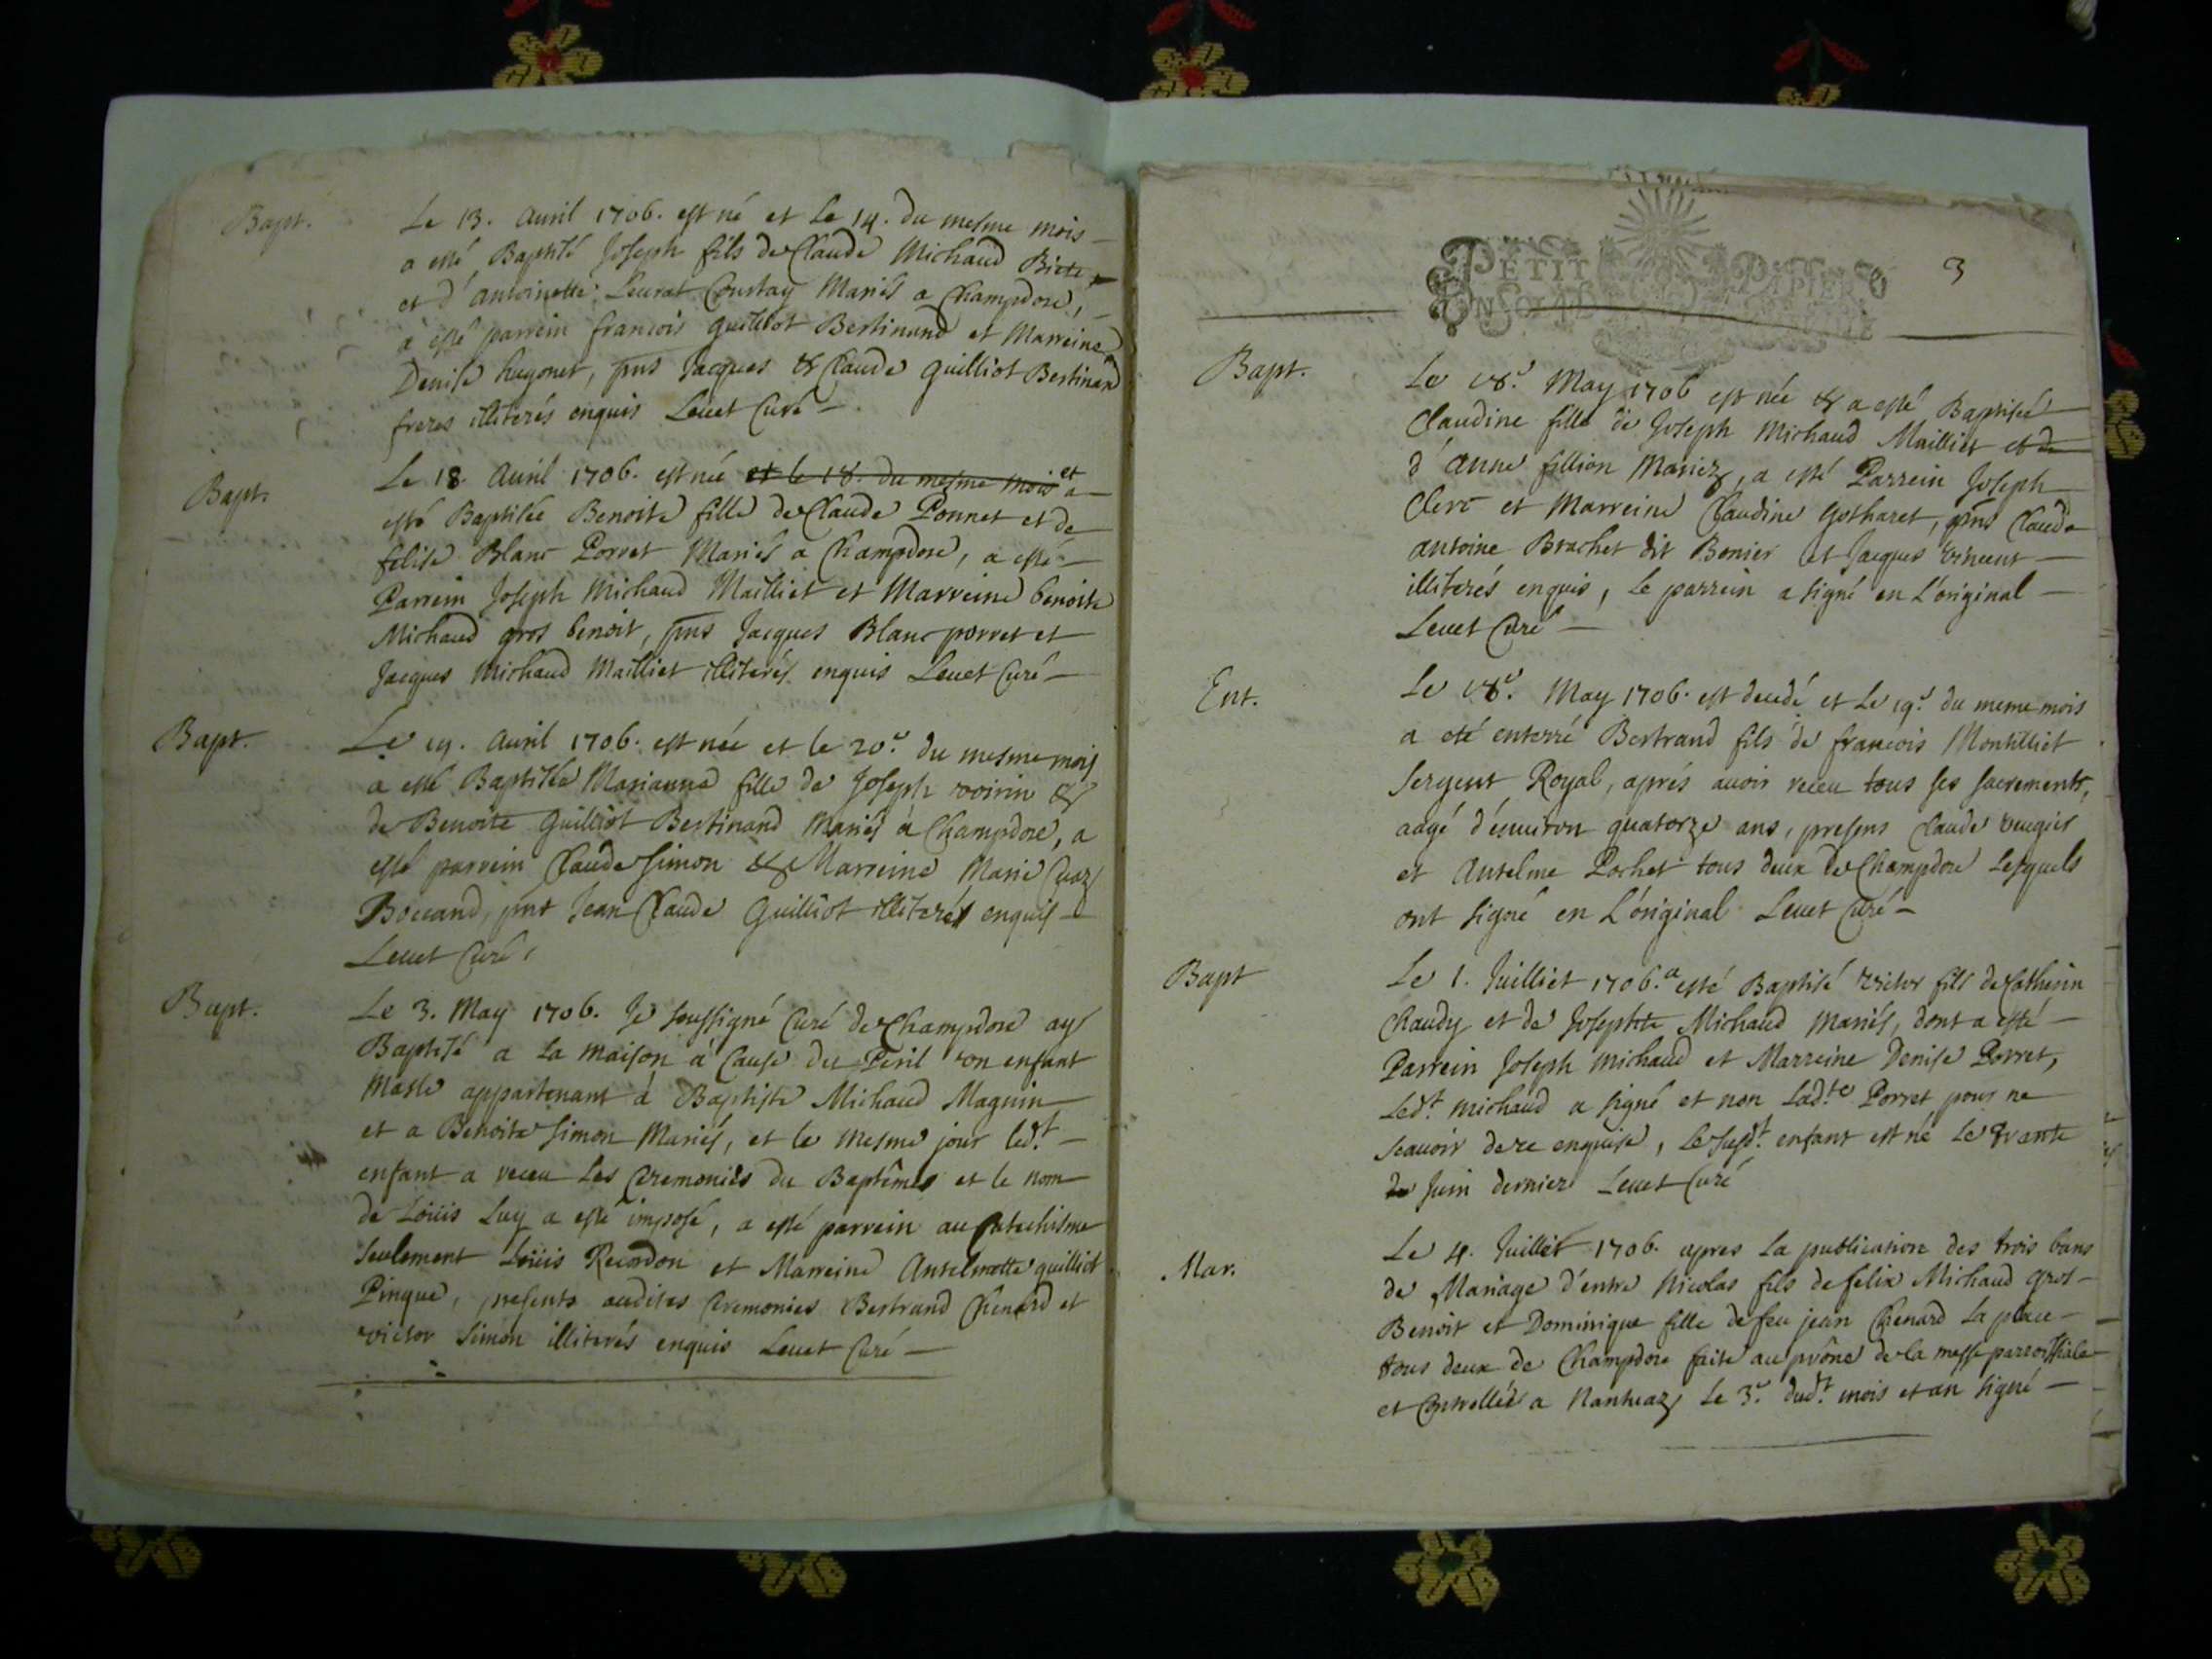 Bapt.
Le 13. Auril 1706. est né et Le 14. du mesme mois
a esté Baptisé Joseph fils de Claude Michaud
et d'antoinette Leurat Coustay Mariés a Champdore,
a esté parrein francois Guilliot Bertinand et Marreine
Denise hugonet, pns Jacques & Claude Guilliot Bertinand
freres illiterés enquis Leuet Curé
Bapt.
Le 18. Auril 1706. est née et le 18. du mesme mois et a
esté Baptisée Benoite fille de Claude Ponnet et de
felise Blanc Porret Mariés a Champdore, a esté
Parrein Joseph Michaud Mailliet et Marreine benoite
Michaud gros benoit, pns Jacques Blanc porret et
Jacques Michaud Mailliet illiterés enquis Leuet Curé
Bapt.
Le 19. Auril 1706. est née et le 20e. du mesme mois
a esté Baptisée Marianne fille de Joseph voirin &
de Benoite Guilliot Bertinand Mariés a Champdore, a
esté parrein Claude Simon & Marreine Marie Cuaz
Boccand, pnt Jean Claude Guilliot illiterés enquis
Leuet Curé,
Bapt.
Le 3. May 1706. Je soussigné Curé de Champdore ay
Baptisé a La maison a Cause du Peril von enfant
Masle appartenant a Baptiste Michaud Magnin
et a Benoite Simon Mariés, et le mesme jour led.t
enfant a receu Les Ceremonies du Baptême et le nom
de Loüis Luy a esté imposé, a esté parrein au Catechisme
seulement Loüis Recordon et Marreine Anthelmette guilliot
Pingue, presents audites Ceremonies Bertrand Chenard et
victor Simon illiterés enquis Leuet Curé
PETIT PAPIER
3
Bapt.
Le 18e. May 1706 est née & a esté Baptisée
Claudine fille de Joseph Michaud Mailliet et de
d'anne fillion Mariez, a esté Parrein Joseph
Clerc et Marreine Claudine Gotharet, pns Claude
antoine Brachet dit Bonier et Jacques vincent
illiterés enquis, Le parrein a signé en L'original
Leuet Curé
Ent.
Le 18e. May 1706. est decedé et Le 19e. du meme mois
a eté enterré Bertrand fils de francois Montilliet
Sergent Royal, aprés auoir receu tous ses sacrements,
aagé d'enuiron quatorze ans, presens Claude
et Antelme Pochet tous deux de Champdore Lesquels
ont signé en L'original Leuet Curé
Bapt
Le 1. Juilliet 1706. a esté Baptisé victor fils de Catherin
Chaudy et de Josephte Michaud Mariés, dont a esté
Parrein Joseph Michaud et Marreine Denise Porret,
Led.t michaud a signé et non Lad.te Porret pour ne
scauoir de ce enquise, Le susd.t enfant est né Le trante
de Juin dernier Leuet Curé
Mar.
Le 4. Juillet 1706. apres La publication des trois bans
de Mariage d'entre Nicolas fils de felix Michaud gros-
Benoit et Dominique fille de feu jean Chenard La place
tous deux de Champdore faite au prône de la messe parroissiale
et Controllés a Nantuaz Le 3e. dud.t mois et an signé